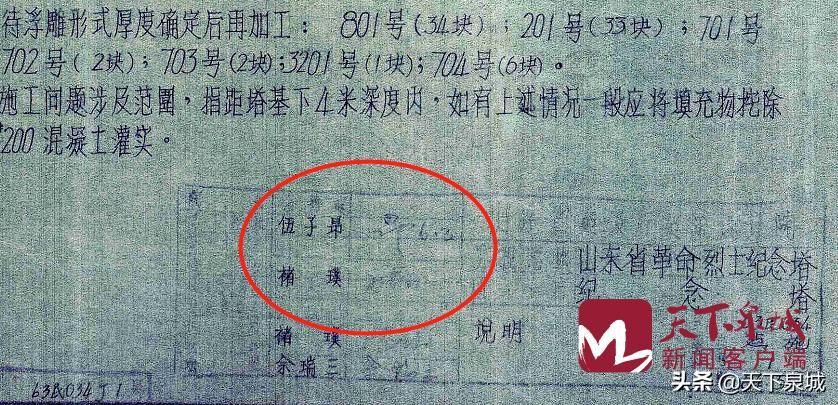 待浮雕形式厚度确定后再加工: 801号(34块); 201号(33块); 701号
702号(2块); 703号(2块); 3201号(1块); 704号(6块)。
施工问题涉及范围,指距塔基下4米深度内,如有上述情况一段应将填充物挖除
200混凝土灌实。
伍子昂
褚璞
褚璞
余瑞三
说明
山东省革命烈士纪念塔
纪念塔
63B034J1
天下泉城
新闻客户端
头条@天下泉城